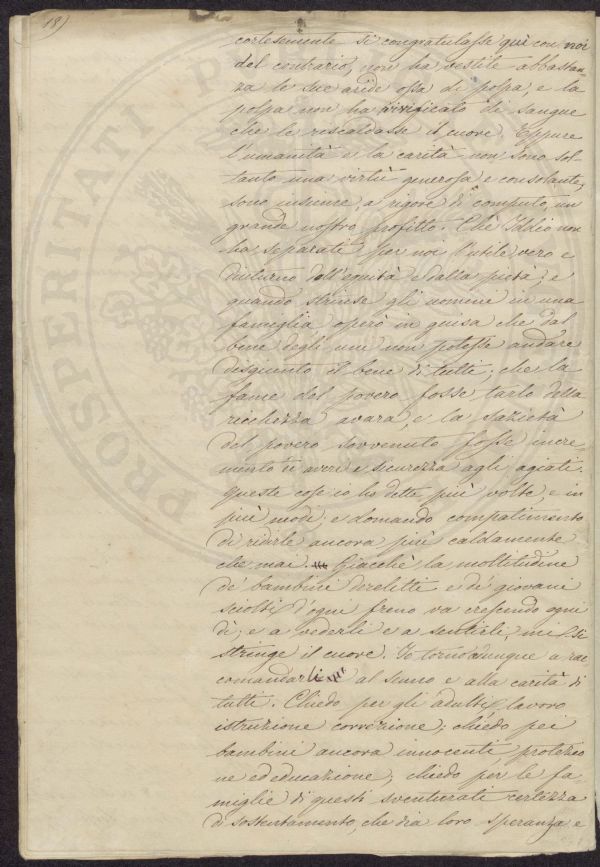 18)
cortesemente si congratulasse quì con noi
del contrario, non ha vestite abbastan-
za le sue aride ossa di polpa, e la
polpa non ha vivificato di sangue
che le riscaldasse il cuore. Eppure
l'umanità e la carità non sono sol-
tanto una virtù generosa e consolante,
sono insieme, a rigore di computo, un
grande nostro profitto. Chè Iddio non
ha separati per noi l'utile vero e
diuturno dall'equità e dalla pietà; e
quando strinse gli uomini in una
famiglia operò in guisa che dal
bene degli uni non potesse andare
disgiunto il bene di tutti; che la
fame del povero fosse tarlo della
ricchezza avara, e la sazietà
del povero sovvenuto fosse incre-
mento di averi e sicurezza agli agiati.
Queste cose io ho dette più volte, e in
più modi; e domando compatimento
di ridirle ancora più caldamente
che mai. Giacchè la moltitudine
de' bambini derelitti e de' giovani
sciolti d'ogni freno va crescendo ogni
dì; e a vederli e a sentirli, mi si
stringe il cuore. Io torno dunque a rac-
comandarli al senno e alla carità di
tutti. Chiedo per gli adulti, lavoro
istruzione correzione; chiedo pei
bambini ancora innocenti, protezio
ne ed educazione; chiedo per le fa
miglie di questi sventurati certezza
di sostentamento, che dia loro speranza e
PROSPERITATI P